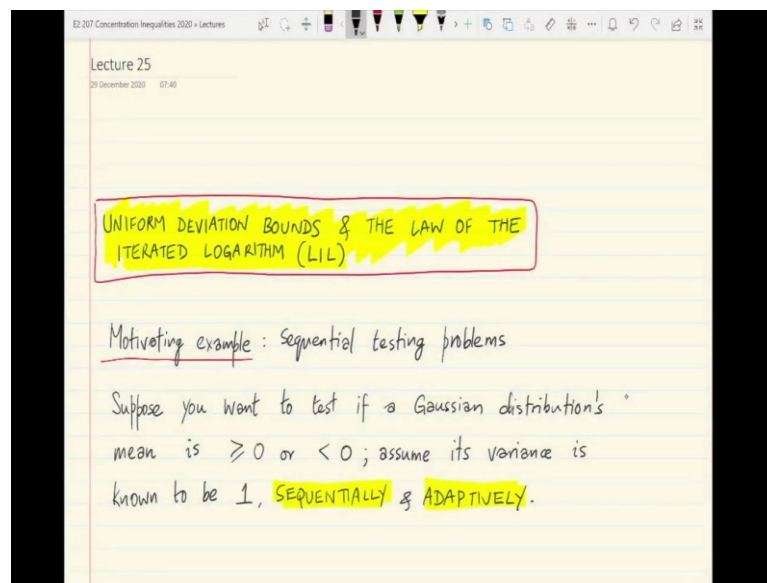 E2 207 Concentration Inequalities 2020 » Lectures
Lecture 25
29 December 2020 07:40
UNIFORM DEVIATION BOUNDS & THE LAW OF THE
ITERATED LOGARITHM (LIL)
Motivating example : Sequential testing problems
Suppose you want to test if a Gaussian distribution's
mean is ⩾ 0 or < 0 ; assume its variance is
known to be 1, SEQUENTIALLY & ADAPTIVELY.